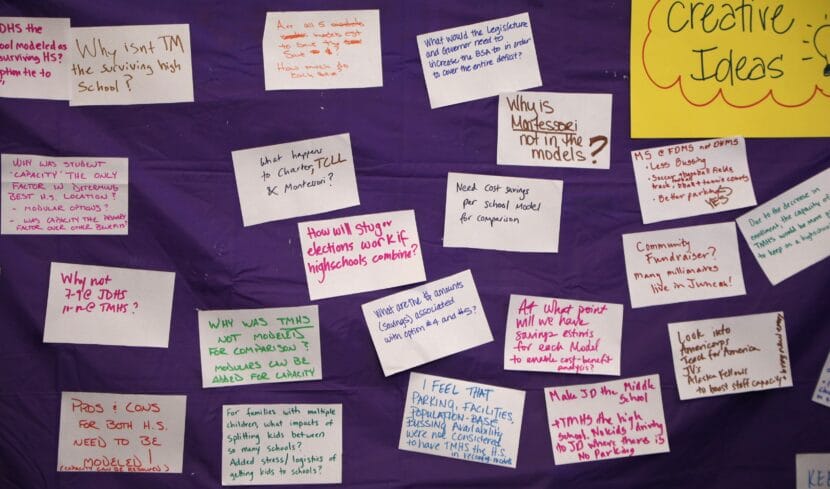 JDHS the
ool modeled as
surviving HS?
option tie to
Why isnt TM
the surviving high
School?
Are all 5 models
How much $s
What would the Legislature
and Governor need to
increase the BSA to in order
to cover the entire deficit?
Creative
Ideas
Why is
Montessori
not in the
models?
WHY WAS STUDENT
"CAPACITY" THE ONLY
FACTOR IN DETERMING
BEST H.S. LOCATION?
- MODULAR OPTIONS?
- WAS CAPACITY THE PRIMARY
FACTOR OVER OTHER BENEFITS?
What happens
to Charter, TCLL
& Montessori?
Need cost savings
per school Model
for comparison
MS @ FDMS not DHMS
• Less Bussing
• Soccer, baseball fields
track, football + tennis courts
• Better parking
YES
Due to the decrease in
enrollment, the capacity of
TMHS would be more
to keep as a highschool
How will stugov
elections work if
highschools combine?
Community
Fundraiser?
Many millionaires
live in Juneau!
Why not
7-9 @ JDHS
10-12 @ TMHS?
WHY WAS TMHS
NOT MODELED
FOR COMPARISON?
MODULARS CAN BE
ADDED FOR CAPACITY
What are the $ amounts
(savings) associated
with option #4 and #5?
At what point
will we have
savings estims
for each Model
to enable cost-benefit
analysis?
Look into
Americorps
Teach for America
JVs
Alaska Fellows
to boost staff capacity
PROS & CONS
FOR BOTH H.S.
NEED TO BE
MODELED!
(CAPACITY CAN BE RESOLVED)
For families with multiple
children, what impacts of
splitting kids between
so many schools?
Added stress/logistics of
getting kids to schools?
I FEEL THAT
PARKING, FACILITIES,
POPULATION-BASE
BUSSING AVAILABILITY
WERE NOT CONSIDERED
TO HAVE TMHS THE H.S.
IN models
Make JD the Middle
School
+ TMHS the high
school. No kids driving
to JD where there is
No Parking
KEE